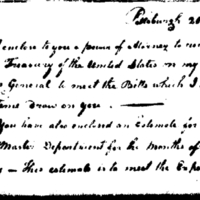 Pittsburgh 20
I enclose to you a power of Attorney to rec
Treasury of the United States on my
General to meet the Bills which I
times draw on you. —
You have also enclosed an Estimate for
Master Department for the Months of
— This estimate is to meet the Expe